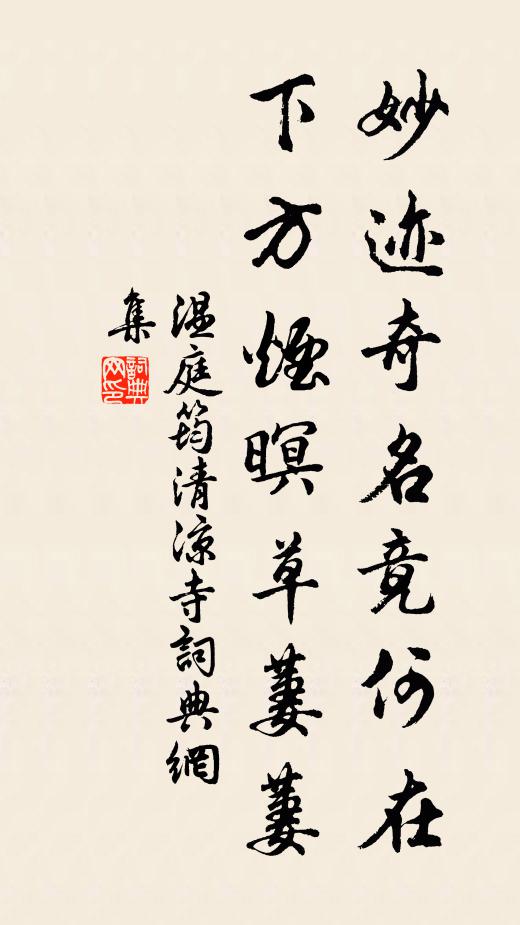 妙迹奇名竟何在
下方煙暝草萋萋
温庭筠清凉寺詞典網
集
詞典
网印